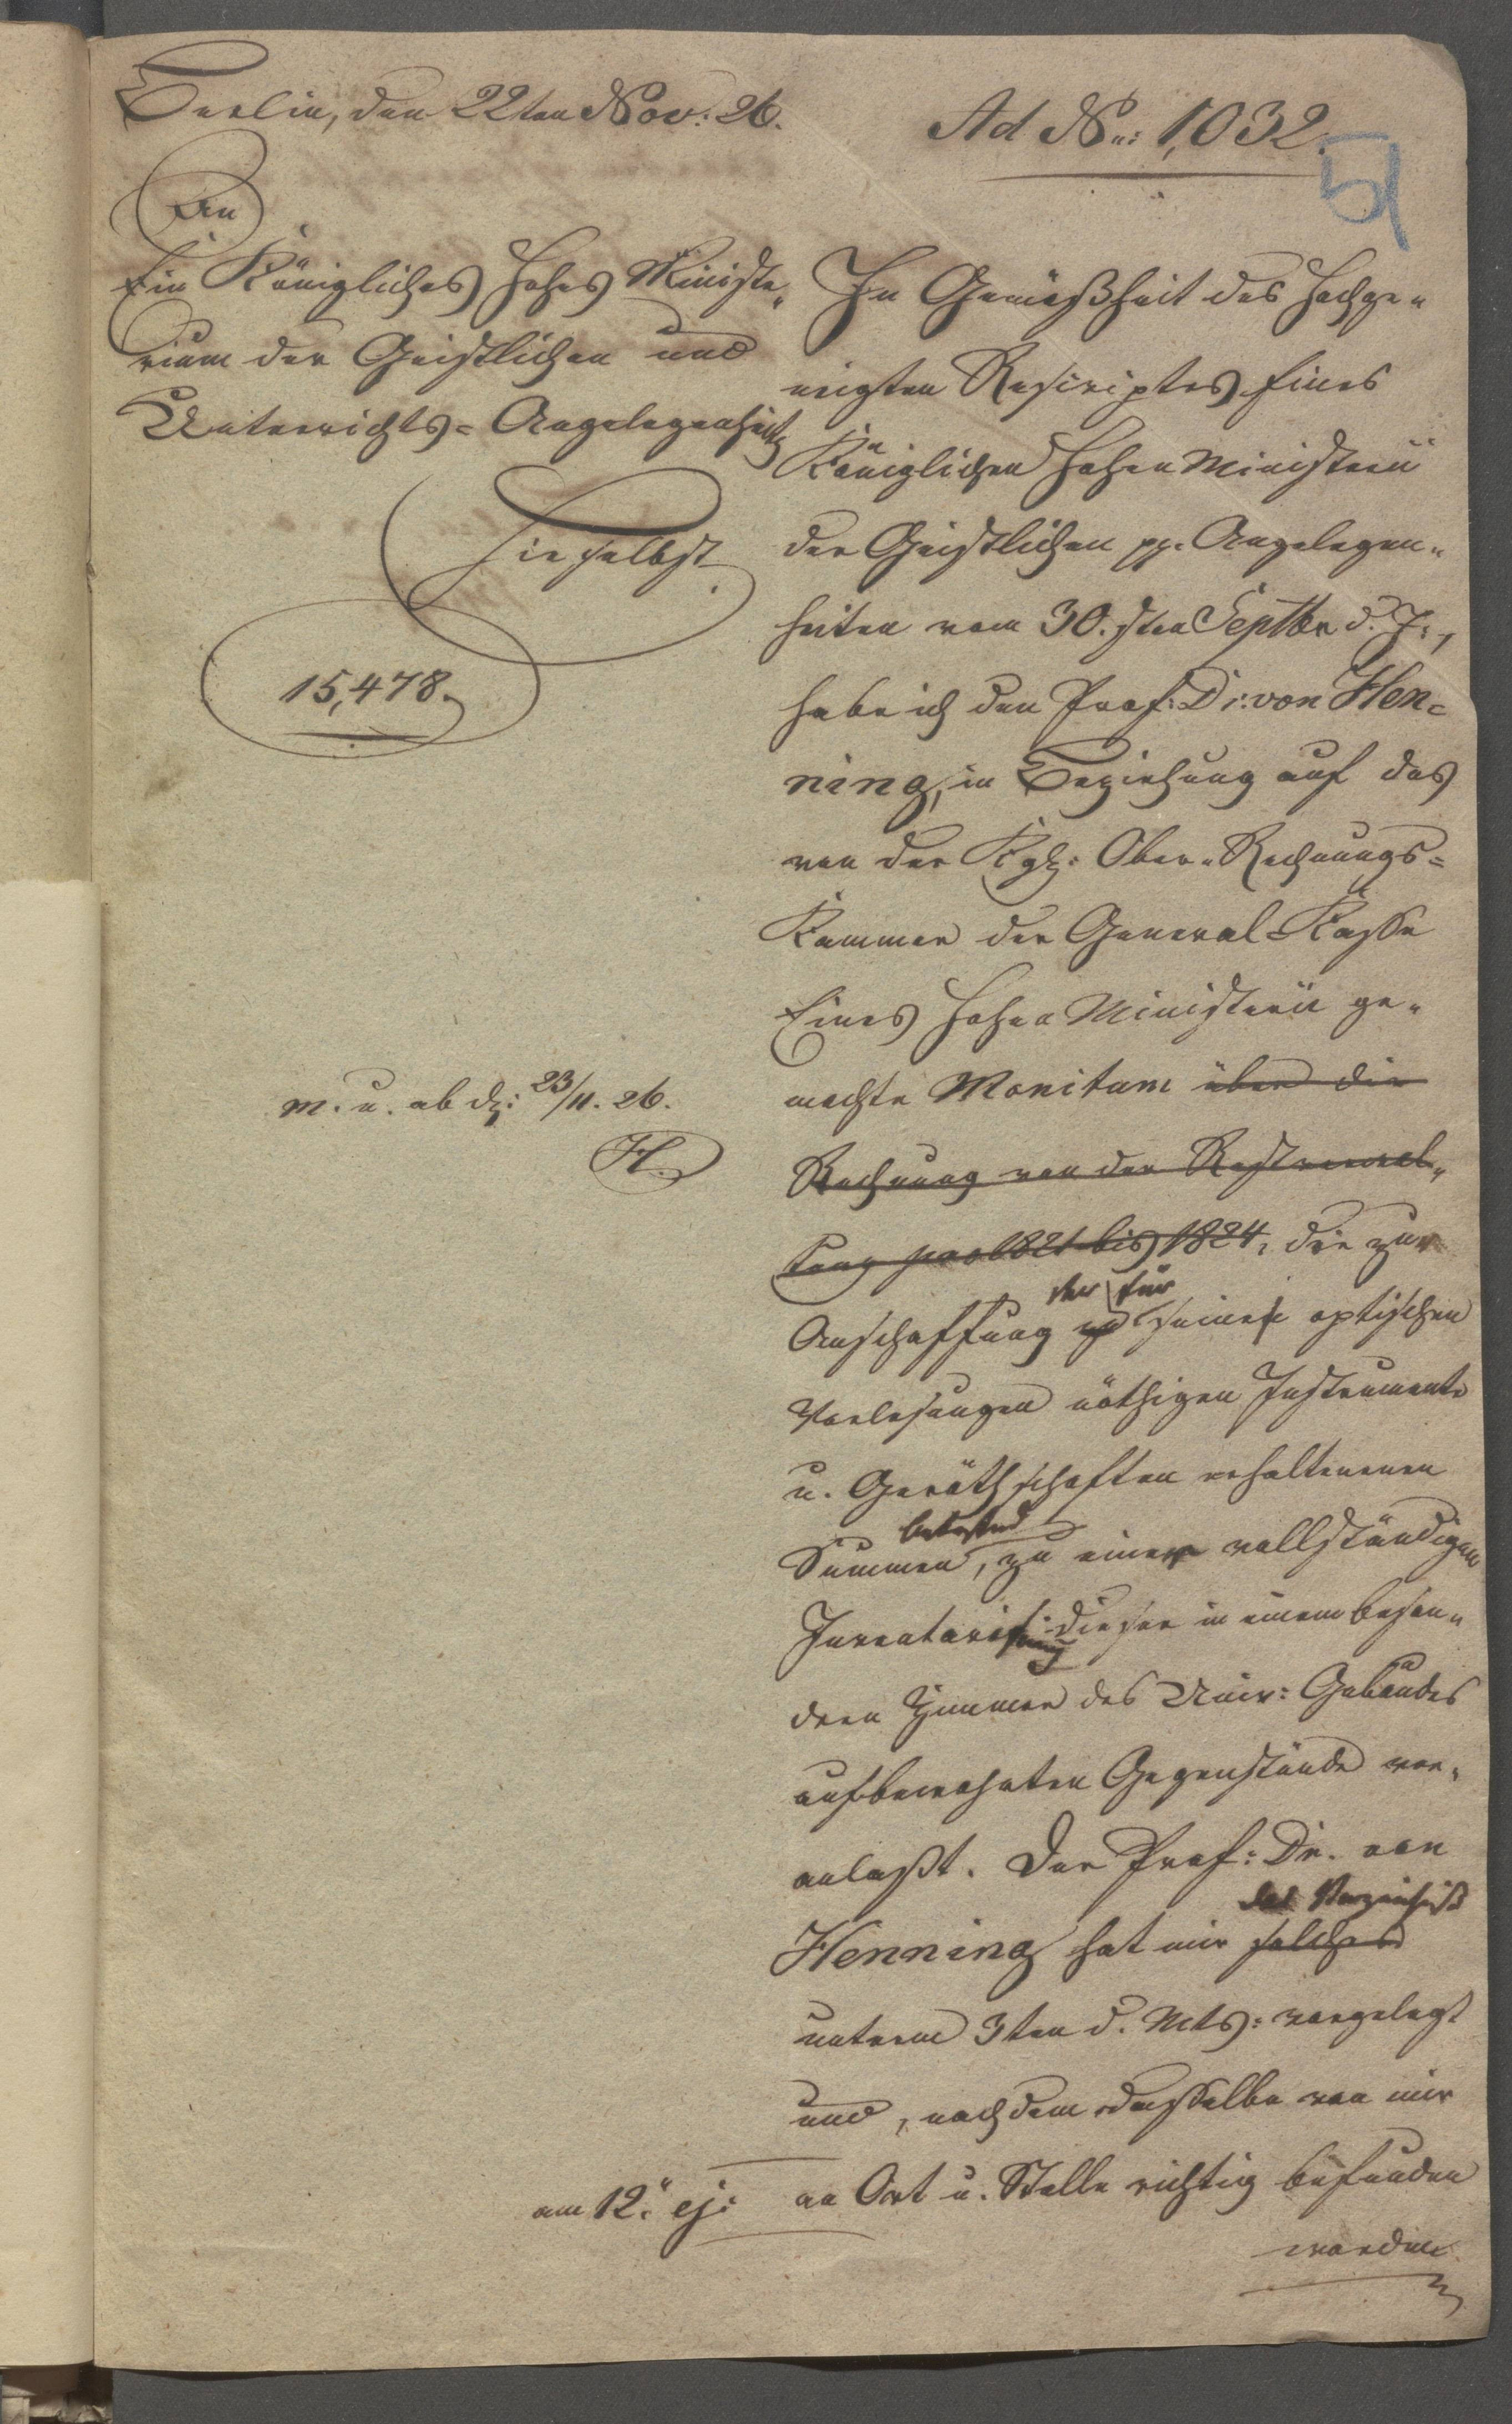 Berlin, den 22ten Nov: 26.
Ad No: 1,032.
51
An
Ein Königliches Hohes Ministe„
rium der Geistlichen und
Unterrichts= Angelegenheit
Hieselbst.
15,478.
m. u. ab d: 23/11. 26.
H.
In Gemäßheit des hochge„
neigten Rescriptes Eines
Königlichen Hohen Ministerii
der Geistlichen pp. Angelegen„
heiten vom 30.sten Septbr d. J.,
habe ich den Prof: Dr: von Hen=
ning, in Beziehung auf das
von der Kgl: Ober„Rechnungs=
Kammer der General=Kasse
Eines Hohen Ministerii ge„
machte Monitum über die
Rechnung von der Restverwal„
tung pro 1821 bis 1824, die zur
der für
Anschaffung seine optischen
Vorlesungen nöthigen Instrumente
u. Geräthschaften erhaltenen
betreffend
Summen, zu einer vollständigen
Inventarisirung dieser in einem beson„
dern Zimmer des Univ: Gebäudes
aufbewahrten Gegenstände ver„
anlaßt. Der Prof: Dr. von
das Verzeichniß
Henning hat mir solches
unterm 3ten d. Mts: vorgelegt
und, nachdem dasselbe von mir
am 12. ej: an Ort u. Stelle richtig befunden
worden